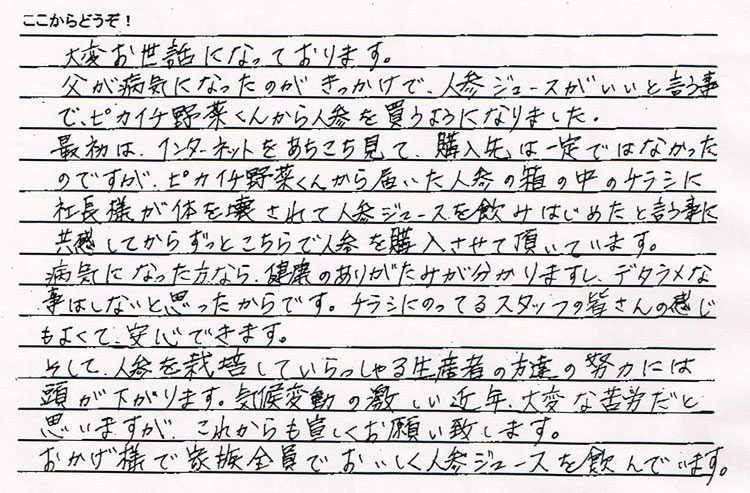 ここからどうぞ！
大変お世話になっております。
父が病気になったのがきっかけで、人参ジュースがいいと言う事
で、ピカイチ野菜くんから人参を買うようになりました。
最初は、インターネットをあちこち見て、購入先は一定ではなかった
のですが、ピカイチ野菜くんから届いた人参の箱の中のチラシに
社長様が体を壊されて人参ジュースを飲みはじめたと言う事に
共感してからずっとこちらで人参を購入させて頂いています。
病気になった方なら、健康のありがたみが分かりますし、デタラメな
事はしないと思ったからです。チラシにのってるスタッフの皆さんの感じ
もよくて、安心できます。
そして、人参を栽培していらっしゃる生産者の方達の努力には
頭が下がります。気候変動の激しい近年、大変な苦労だと
思いますが、これからも宜しくお願い致します。
おかげ様で家族全員でおいしく人参ジュースを飲んでいます。